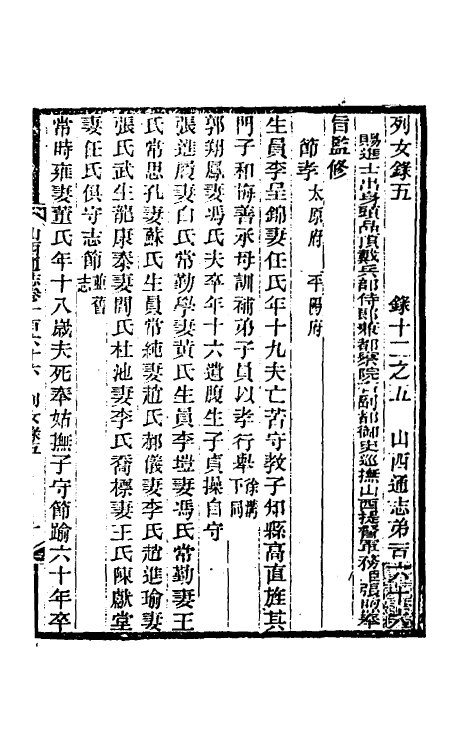 列女錄五 錄十二之五 山西通志弟一百六十六
賜進士出身頭品頂戴兵部侍郎兼都察院右副都御史巡撫山西提督軍務臣張煦奉
旨監修
節孝 太原府 平陽府
生員李呈錦妻任氏年十九夫亡苦守敎子知縣高直旌其
門子和海善承母訓補弟子員以孝行舉徐溝下同
郭朔鳳妻馮氏夫卒年十六遺腹生子貞操自守
張進賢妻白氏常勤學妻黃氏生員李瑄妻馮氏常勤妻王
氏常思孔妻蘇氏生員常純妻趙氏郝儀妻李氏趙進瑜妻
張氏武生龍康泰妻閻氏杜池妻李氏喬標妻王氏陳獻堂
妻任氏俱守志節並舊志
常時雍妻董氏年十八歲夫死奉姑撫子守節踰六十年卒
山西通志卷一百六十六 列女錄五